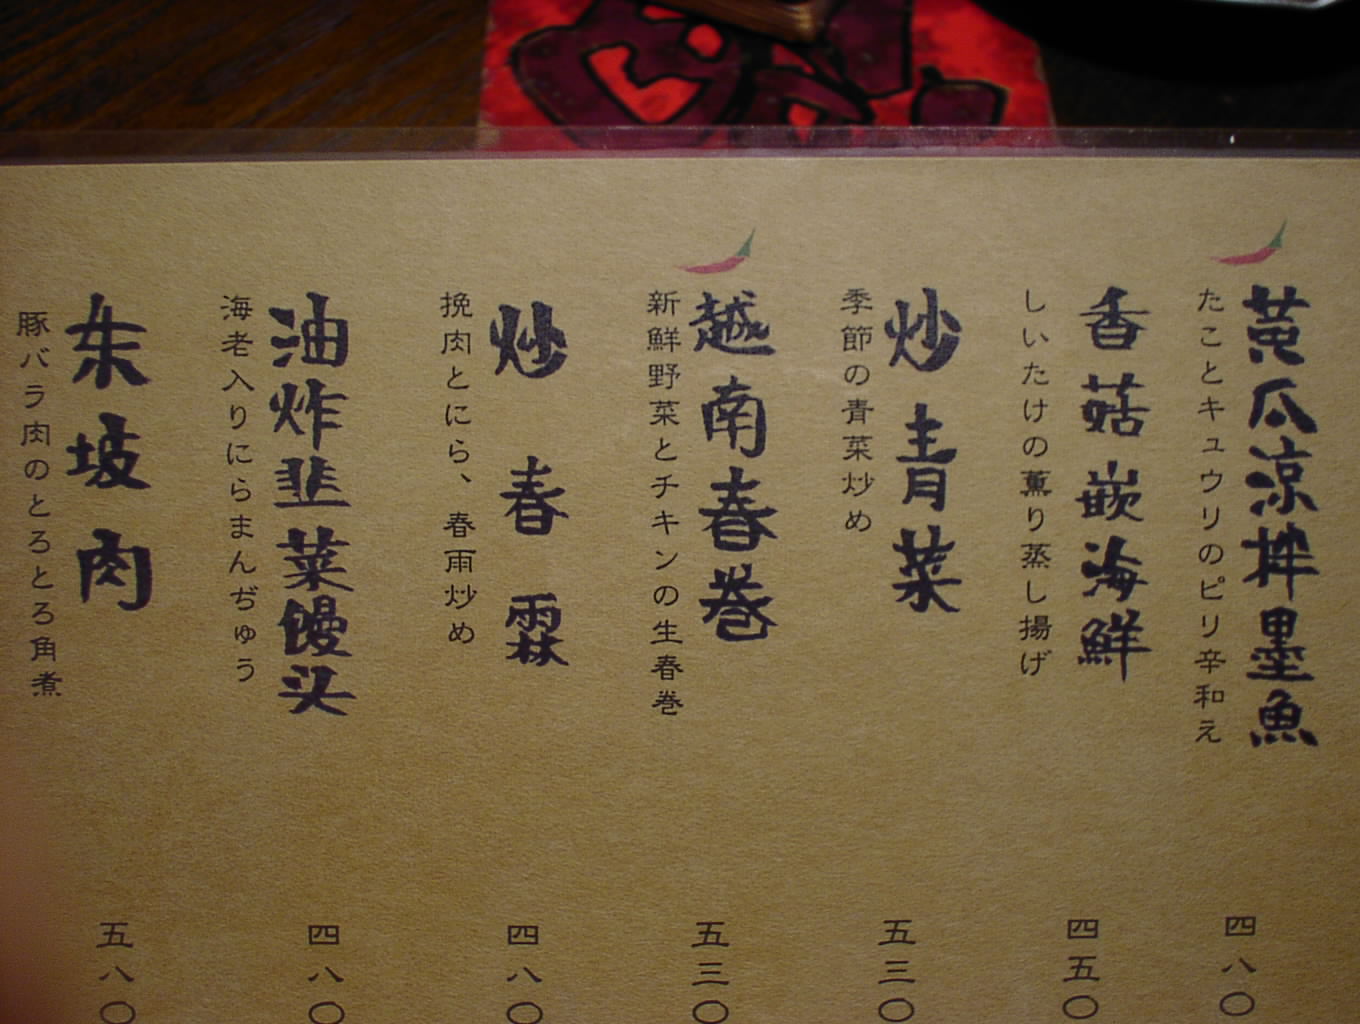 黄瓜涼拌墨魚
たことキュウリのピリ辛和え
四八〇
香菇嵌海鮮
しいたけの薫り蒸し揚げ
四五〇
炒青菜
季節の青菜炒め
五三〇
越南春巻
新鮮野菜とチキンの生春巻
五三〇
炒春霖
挽肉とにら、春雨炒め
四八〇
油炸韭菜馒头
海老入りにらまんぢゅう
四八〇
东坡肉
豚バラ肉のとろとろ角煮
五八〇